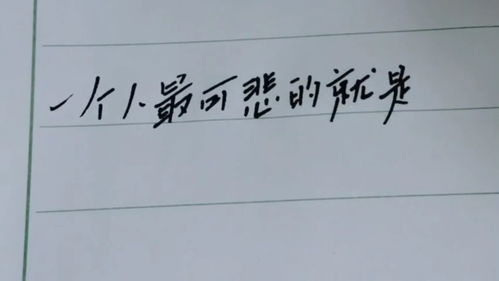 一个人最可悲的就是